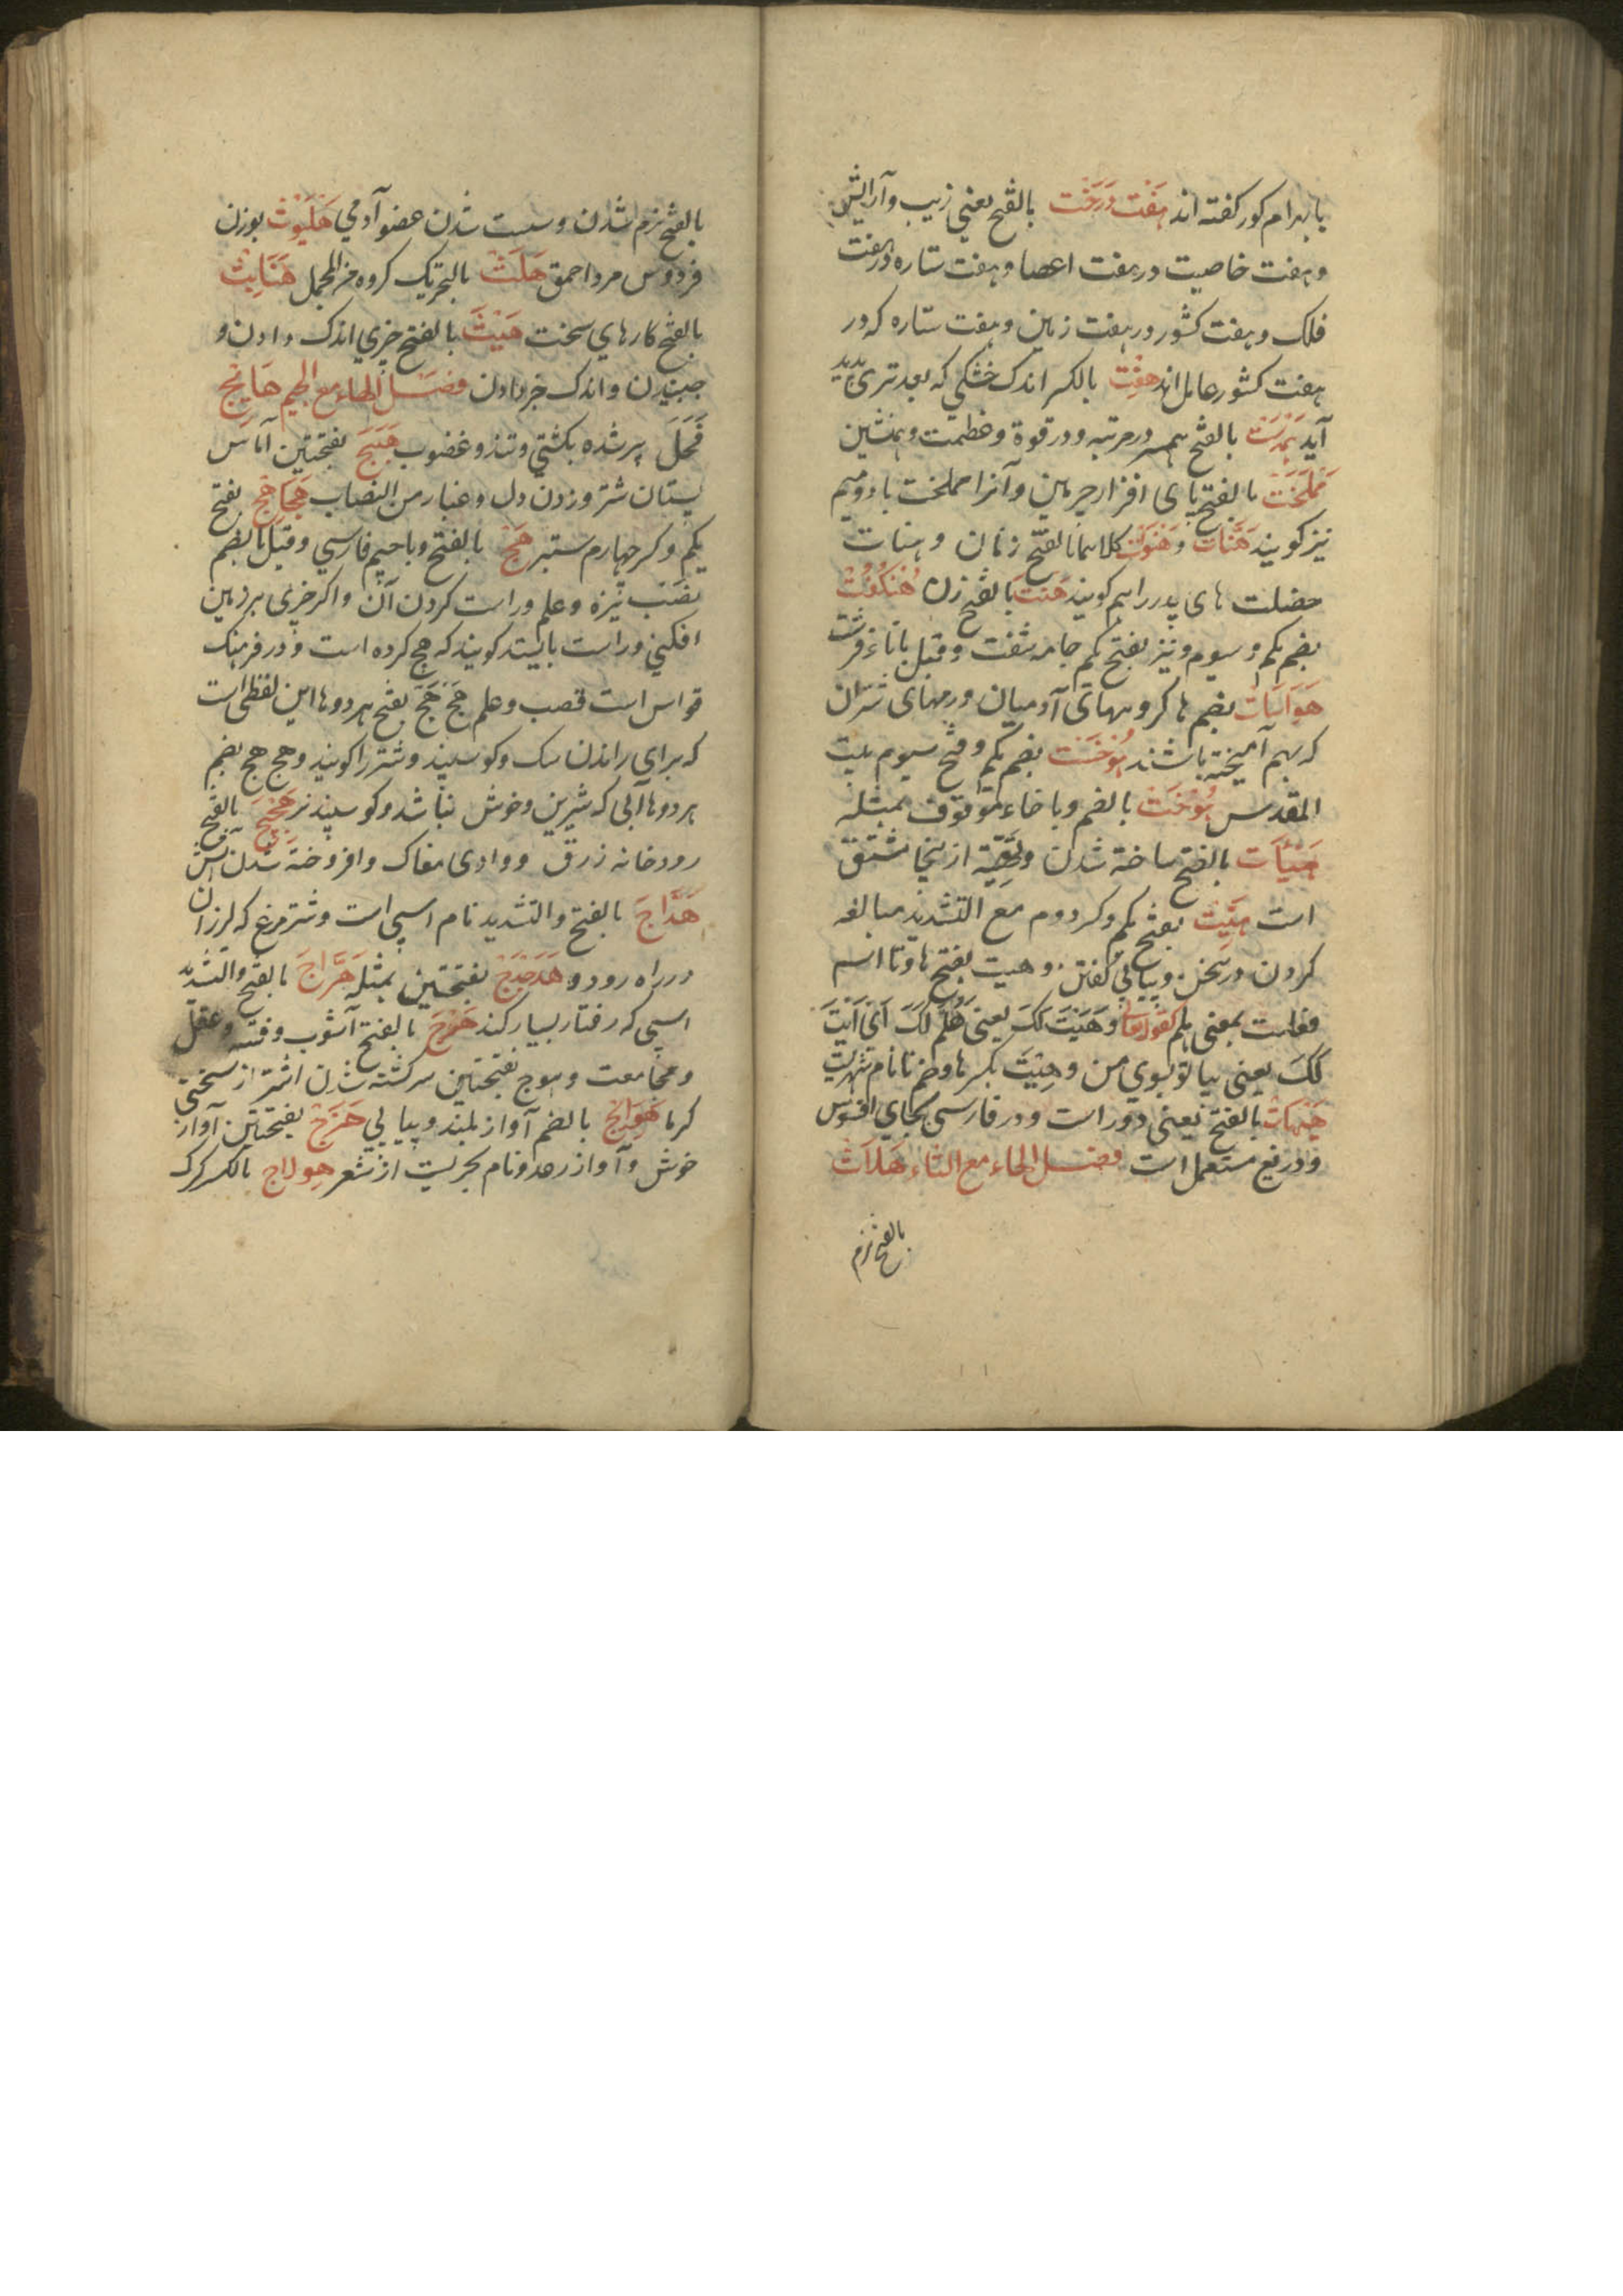 بابهرام کور کفته اند هَفْت دَرَخْت بالفتح یعنی زیب و آرایش
و هفت خاصیت در هفت اعضا و هفت ستاره در هفت
فلک و هفت کشور در هفت زمین و هفت ستاره که در
هفت کشور عامل اند هِفْت بالکسر اندک خشکی که بعد تری پدید
آید بالفتح همسر در مرتبه و در قوة و عظمت و همنشین
هَمْلَخْت بالفتح پای افزار چرمین و آنرا هملخت بادومیم
نیز کویند هَنَات و هَنَوَات کلاهما بالفتح زنان و هنات
خصلت های بد را هم کویند هَنْت بالفتح زن
بضم یکم و سیوم و نیز بفتح یکم جامه شفت و قیل باتاء قرشت
بضم ها کروههای آدمیان و رمهای شتران
که بهم آمیخته باشند هُوخَشت بضم یکم و فتح سیوم بیت
المقدس هُوْخَت بالضم و با خاء موقوف بمثله
هَیْأَت بالفتح ساخته شدن ازینجا مشتق
است هَیِّت بفتح یکم و کسر دوم مع التشدید مبالغه
کردن در سخن و پیاپی کفتن و هیت بفتح ها و تا اسم
فعلست بمعنی هلم کقوله تعالی وَ هَیْتَ لَکَ یعنی هَلُمَّ لَکَ اَیْ اَیْتَ
لَکَ یعنی بیا تو بسوی من و هِیْت بکسر ها و ضم تا نام شهریست
هَیْهَات بالفتح یعنی دور است و در فارسی بجای افسوس
و دریغ مستعمل است فصـــل الهاء مع الثاء هَلاَث
بالفتح نرم
بالفتح نرم شدن و سست شدن عضو آدمی هَلْیَوْث بوزن
فردوس مرد احمق هَلَث بالتحریک کروه من المجمل هَنَابِث
بالفتح کارهای سخت هَیْث بالفتح چیزی اندک دادن و
جنبیدن و اندک خبر دادن فصـــل الهاء مع الجیم هَایِج
فَحَل پر شده بکشتی و تند و غضوب هَبَج بفتحتین آماس
پستان شتر و زدن دل و غبار من النصاب هَجَاهِج بفتح
یکم و کسر چهارم ستبر هَج بالفتح و باجیم فارسی و قیل بالضم
نصب نیزه و علم و راست کردن آن و اکر چیزی بر زمین
افکنی و راست بایستد کویند که هج کرده است و در فرهنک
قواس است قصب و علم هَجْ هَجْ بفتح هر دوها این لفظی است
که برای راندن سک و کوسپند و شتر را کویند و هج هج بضم
هر دوها آبی که شیرین و خوش نباشد و کوسپند نر هَجِیْج بالفتح
رودخانه زرف و وادی مغاک و افروخته شدن آتش
هَدَّاج بالفتح و التشدید نام اسپی است و شتر مرغ که لرزان
در راه رود و هَدَجْدَج بفتحتین بمثله هَرَّاج بالفتح و التشدید
اسپی که رفتار بسیار کند هَرْج بالفتح آشوب و فتنه و عقل
و مجامعت و هوج بفتحتین سرکشته شدن اشتر از سختی
کرما بالضم آواز بلند و پیاپی هَزَج بفتحتین آواز
خوش و آواز رعد و نام بحریست از شعر هِولاج بالکسر کرک